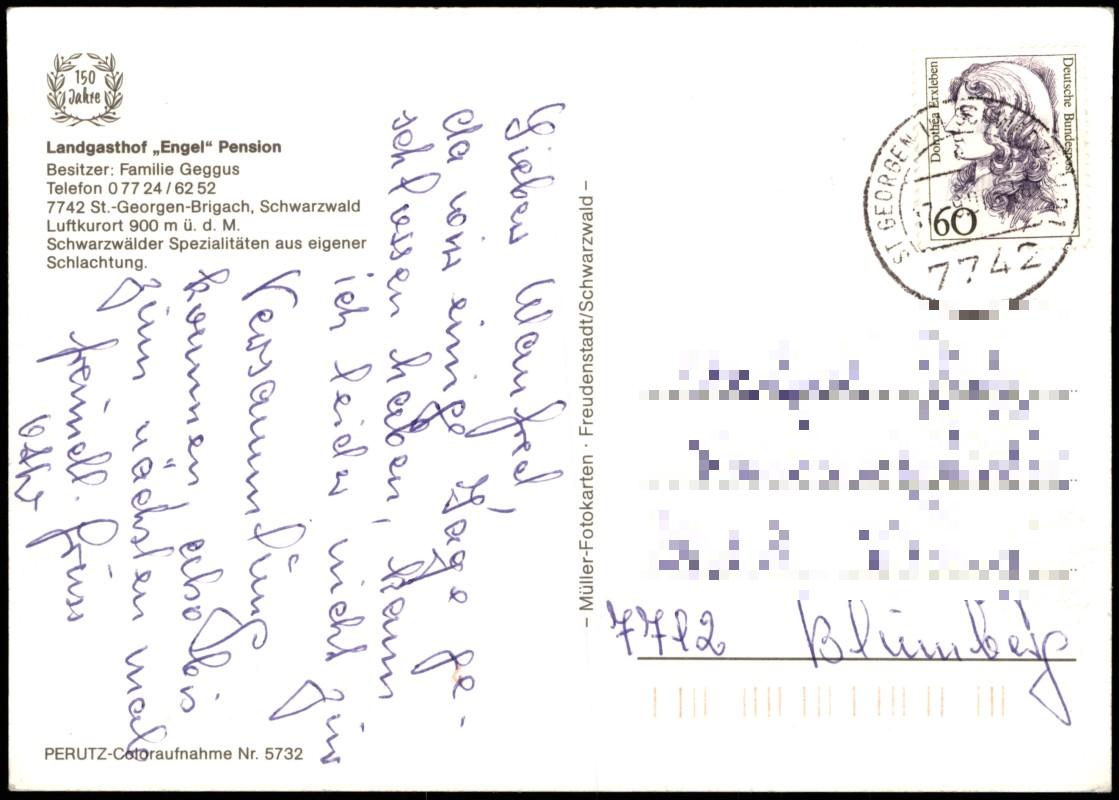 150
Jahre
Landgasthof „Engel“ Pension
Besitzer: Familie Geggus
Telefon 0 77 24 / 62 52
7742 St.-Georgen-Brigach, Schwarzwald
Luftkurort 900 m ü. d. M.
Schwarzwälder Spezialitäten aus eigener
Schlachtung.
Lieber Manfred,
da wir einige Tage ge-
schlossen haben, kann
ich leider nicht zur
Versammlung
kommen, also bis
zum nächsten mal
freundl. Grüss
PERUTZ-Coloraufnahme Nr. 5732
– Müller-Fotokarten · Freudenstadt/Schwarzwald –
Dorothea Erxleben
Deutsche Bundespost
60
ST GEORGEN
7742
7712 Blumberg